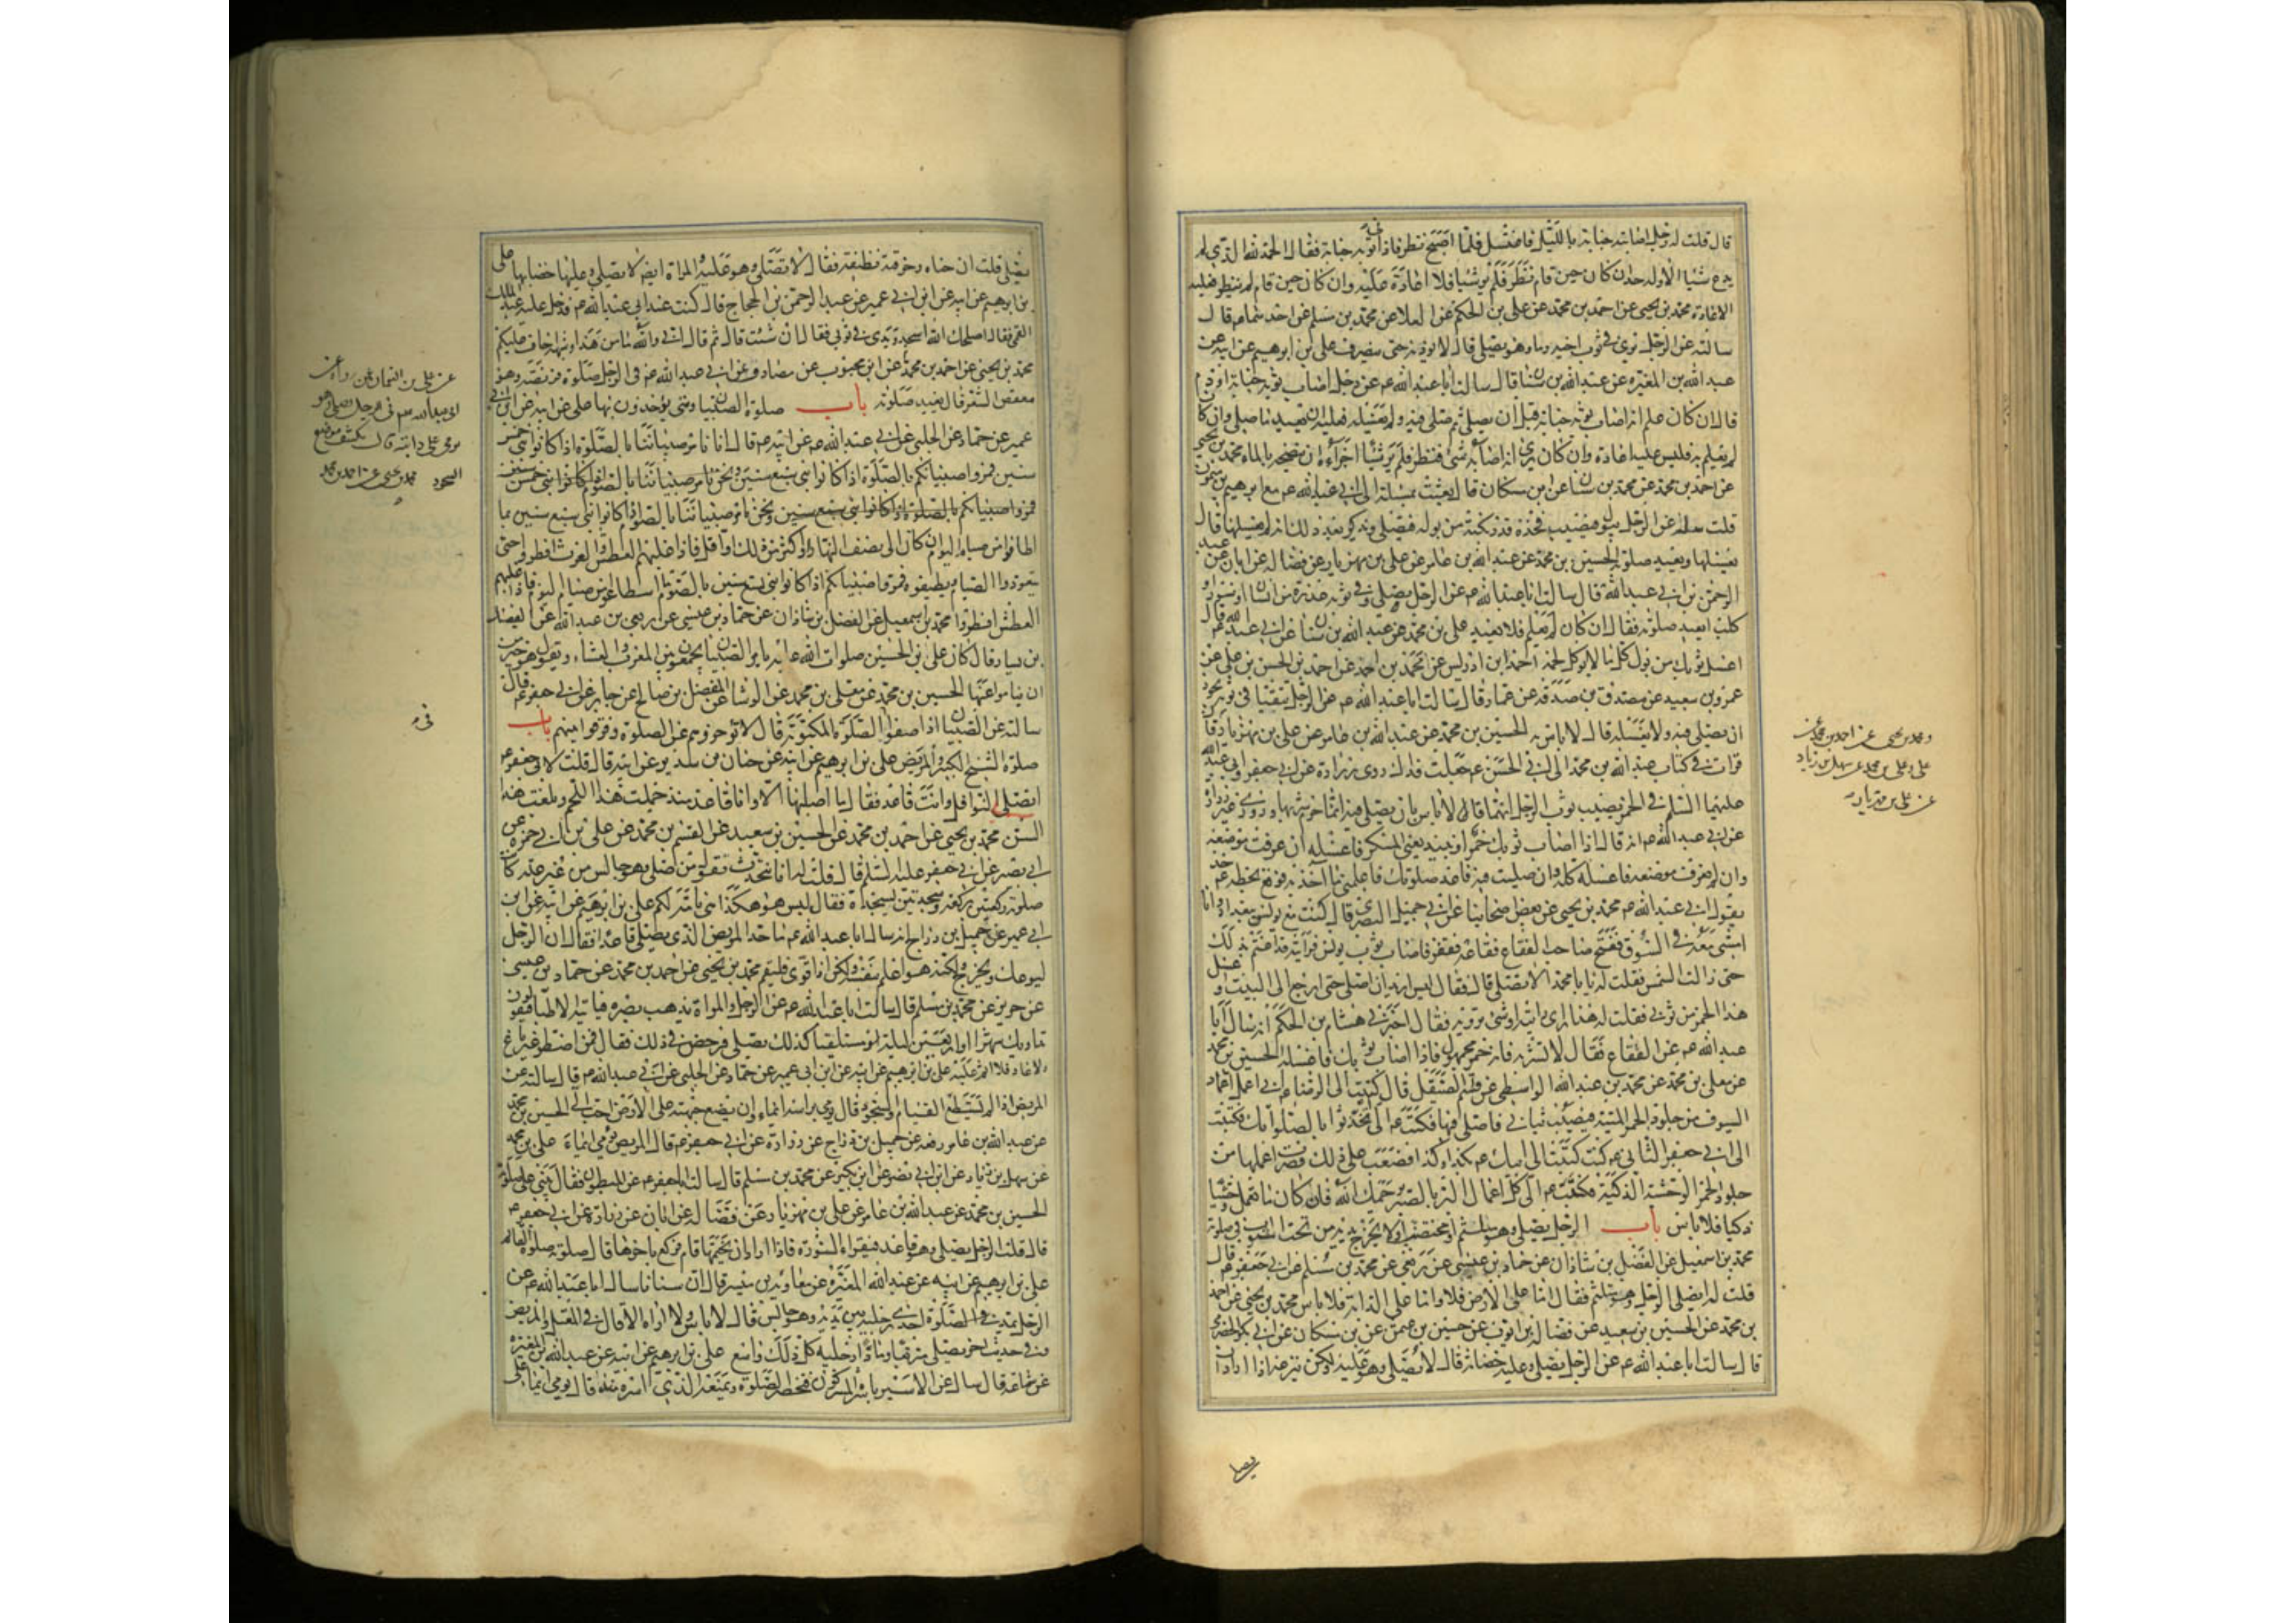 قال قلت له رجل اصابته جنابة بالليل فاغتسل فلما اصبح نظر فاذا بثوبه جنابة فقال الحمد لله الذي لم
يدع شيئا الا وله حد ان كان حين قام نظر فلم ير شيئا فلا اعادة عليه وان كان حين قام لم ينظر فعليه
الاعادة محمد بن يحيى عن احمد بن محمد عن علي بن الحكم عن العلا عن محمد بن مسلم عن احدهما ع قال
سالته عن الرجل يرى في ثوب اخيه دما وهو يصلي قال لا يوذنه حتى ينصرف علي بن ابرهيم عن ابيه عن
عبد الله بن المغيرة عن عبد الله بن سنان قال سالت ابا عبد الله ع عن رجل اصاب ثوبه جنابة او دم
قال ان كان علم انه اصاب ثوبه جنابة قبل ان يصلي ثم صلى فيه ولم يغسله فعليه ان يعيد ما صلى وان كان
لم يعلم به فليس عليه اعادة وان كان يرى انه اصابه شئ فنظر فلم ير شيئا اجزاه ان ينضحه بالماء محمد بن يحيى
عن احمد بن محمد عن محمد بن سنان عن ابن مسكان قال بعثت بمسئلة الى ابي عبد الله ع مع ابرهيم بن ميمون
قلت سله عن الرجل يبول فيصيب فخذه قدر نكتة من بوله فيصلي ويذكر بعد ذلك انه لم يغسلها قال
يغسلها ويعيد صلوته الحسين بن محمد عن عبد الله بن عامر عن علي بن مهزيار عن فضالة عن ابان عن عبد
الرحمن بن ابي عبد الله قال سالت ابا عبد الله ع عن الرجل يصلي وفي ثوبه عذرة من انسان او سنور او
كلب ايعيد صلوته فقال ان كان لم يعلم فلا يعيد علي بن محمد عن عبد الله بن سنان عن ابي عبد الله ع قال
اغسل ثوبك من بول كل ما لا يوكل لحمه احمد بن ادريس عن محمد بن احمد عن احمد بن الحسن بن علي عن
عمرو بن سعيد عن مصدق بن صدقة عن عمار قال سالت ابا عبد الله ع عن الرجل يتقيا في ثوبه يجوز
ان يصلي فيه ولا يغسله قال لا باس به الحسين بن محمد عن عبد الله بن عامر عن علي بن مهزيار قال
قرات في كتاب عبد الله بن محمد الى ابي الحسن ع جعلت فداك روى زرارة عن ابي جعفر وابي عبد الله
عليهما السلم في الخمر يصيب ثوب الرجل انهما قالا لا باس بان يصلي فيه انما حرم شربها وروى غير زرارة
عن ابي عبد الله ع انه قال اذا اصاب ثوبك خمر او نبيذ يعني المسكر فاغسله ان عرفت موضعه
وان لم تعرف موضعه فاغسله كله وان صليت فيه فاعد صلوتك فاعلمني ما آخذ به فوقع بخطه ع خذ
بقول ابي عبد الله ع محمد بن يحيى عن بعض اصحابنا عن ابي جميل البصري قال كنت مع يونس ببغداد وانا
امشي معه في السوق ففتح صاحب الفقاع فقاعه فقفز فاصاب ثوب يونس فرايته قد اغتم بذلك
حتى زالت الشمس فقلت له يا با محمد الا تصلي قال فقال ليس اريد ان اصلي حتى ارجع الى البيت واغسل
هذا الخمر من ثوبي فقلت له هذا راي رايته او شئ ترويه فقال اخبرني هشام بن الحكم انه سال ابا
عبد الله ع عن الفقاع فقال لا تشربه فانه خمر مجهول فاذا اصاب ثوبك فاغسله الحسين بن محمد
عن معلى بن محمد عن محمد بن عبد الله الواسطي عن قاسم الصيقل قال كتبت الى الرضا ع اني اعمل اغماد
السيوف من جلود الحمر الميتة فيصيب ثيابي فاصلي فيها فكتب ع الي اتخذ ثوبا لصلواتك فكتبت
الى ابي جعفر الثاني ع كنت كتبت الى ابيك ع بكذا وكذا فصعب علي ذلك فصرت اعملها من
جلود الحمر الوحشية الذكية فكتب ع الي كل اعمال البر بالصبر يرحمك الله فان كان ما تعمل وحشيا
ذكيا فلا باس باب الرجل يصلي وهو متلثم او مختضب او لا يخرج يديه من تحت الثوب في صلوته
محمد بن اسمعيل عن الفضل بن شاذان عن حماد بن عيسى عن ربعي عن محمد بن مسلم عن ابي جعفر ع قال
قلت له ايصلي الرجل وهو متلثم فقال اما على الارض فلا واما على الدابة فلا باس محمد بن يحيى عن احمد
بن محمد عن الحسين بن سعيد عن فضالة بن ايوب عن حسين بن عثمن عن بن مسكان عن ابي بكر الحضرمي
قال سالت ابا عبد الله ع عن الرجل يصلي وعليه خضابه قال لا يصلي وهو عليه ولكن ينزعه اذا اراد ان
ومحمد بن يحيى عن احمد بن محمد عن
علي وعلي بن محمد عن سهل بن زياد
عن علي بن مهزيار
يصلي
يصلي قلت ان حناه وخرقته نظيفة فقال لا يصلي وهو عليه والمراة ايضا لا يصلي وعليها خضابها علي
بن ابرهيم عن ابيه عن ابن ابي عمير عن عبد الرحمن بن الحجاج قال كنت عند ابي عبد الله ع فدخل عليه عبد الملك
القمي فقال اصلحك الله اسجد ويدي في ثوبي فقال ان شئت قال ثم قال اني والله ما من هذا وشبهه اخاف عليكم
محمد بن يحيى عن احمد بن محمد عن ابن محبوب عن مصادف عن ابي عبد الله ع في الرجل صلى صلوة فريضة وهو
معقص الشعر قال يعيد صلوته باب صلوة الصبيان ومتى يؤخذون بها علي عن ابيه عن ابن ابي
عمير عن حماد عن الحلبي عن ابي عبد الله ع عن ابيه ع قال انا نامر صبياننا بالصلوة اذا كانوا بني خمس
سنين فمروا صبيانكم بالصلوة اذا كانوا بني سبع سنين ونحن نامر صبياننا بالصوم اذا كانوا بني خمس سنين
فمروا صبيانكم بالصلوة اذا كانوا بني سبع سنين ونحن نامر صبياننا بالصوم اذا كانوا بني سبع سنين بما
اطاقوا من صيام اليوم ان كان الى نصف النهار او اكثر من ذلك او اقل فاذا غلبهم العطش والغرث افطروا حتى
يتعودوا الصيام ويطيقوه فمروا صبيانكم اذا كانوا بني تسع سنين بالصوم ما استطاعوا من صيام اليوم فاذا غلبهم
العطش افطروا محمد بن اسمعيل عن الفضل بن شاذان عن حماد بن عيسى عن ربعي بن عبد الله عن الفضيل
بن يسار قال كان علي بن الحسين صلوات الله عليه يامر الصبيان يجمعون بين المغرب والعشاء ويقول هو خير من
ان يناموا عنها الحسين بن محمد عن معلى بن محمد عن الوشا عن المفضل بن صالح عن جابر عن ابي جعفر ع قال
سالته عن الصبيان اذا صفوا في الصلوة المكتوبة قال لا تؤخروهم عن الصلوة وفرقوا بينهم باب
صلوة الشيخ الكبير والمريض علي بن ابرهيم عن ابيه عن حنان بن سدير عن ابيه قال قلت لابي جعفر ع
اتصلي النوافل وانت قاعد فقال ما اصليها الا وانا قاعد منذ حملت هذا اللحم وبلغت هذا
السن محمد بن يحيى عن احمد بن محمد عن الحسين بن سعيد عن القسم بن محمد عن علي بن ابي حمزة عن
ابي بصير عن ابي جعفر عليه السلم قال قلت له انا نتحدث نقول من صلى وهو جالس من غير علة كانت
صلوته ركعتين بركعة وسجدتين بسجدة فقال ليس هو هكذا هي تامة لكم علي بن ابرهيم عن ابيه عن ابن
ابي عمير عن جميل بن دراج انه سال ابا عبد الله ع ما حد المريض الذي يصلي قاعدا فقال ان الرجل
ليوعك ويحرج ولكنه هو اعلم بنفسه ولكن اذا قوي فليقم محمد بن يحيى عن احمد بن محمد عن حماد بن عيسى
عن حريز عن محمد بن مسلم قال سالت ابا عبد الله ع عن الرجل والمراة يذهب بصره فياتيه الاطباء فيقولون
نداويك شهرا او اربعين ليلة مستلقيا كذلك يصلي فرخص في ذلك فقال فمن اضطر غير باغ
ولا عاد فلا اثم عليه علي بن ابرهيم عن ابيه عن ابن ابي عمير عن حماد عن الحلبي عن ابي عبد الله ع قال سالته عن
المريض اذا لم يستطع القيام والسجود قال يومي براسه ايماء وان يضع جبهته على الارض احب الي الحسين بن محمد
عن عبد الله بن عامر رفعه عن جميل بن دراج عن زرارة عن ابي جعفر ع قال المريض يومي ايماء علي بن محمد
عن سهل بن زياد عن ابن ابي نصر عن ابن بكير عن محمد بن مسلم قال سالت ابا جعفر ع عن المبطون فقال يبني على صلوته
الحسين بن محمد عن عبد الله بن عامر عن علي بن مهزيار عن فضالة عن ابان عن زرارة عن ابي جعفر ع
قال قلت الرجل يصلي وهو قاعد فيقرء السورة فاذا اراد ان يختمها قام فركع باخرها قال صلوته صلوة القائم
علي بن ابرهيم عن ابيه عن عبد الله المغيرة عن معاوية بن ميسرة قال ان سنانا سال ابا عبد الله ع عن
الرجل يمد في الصلوة احدى رجليه بين يديه وهو جالس قال لا باس ولا اراه الا قال في المعتل والمريض
وفي حديث اخر يصلي متربعا ومادا رجليه كل ذلك واسع علي بن ابرهيم عن ابيه عن عبد الله بن المغيرة
عن سماعة قال سال عن الاسير ياسره المشركون فتحضر الصلوة ويمنعه الذي اسره منها قال يومي ايماء علي
عن علي بن النعمان عمن رواه عن
ابي عبد الله ع في الرجل يصلي وهو
يومي على دابته قال يكشف موضع
السجود محمد بن يحيى عن احمد بن محمد